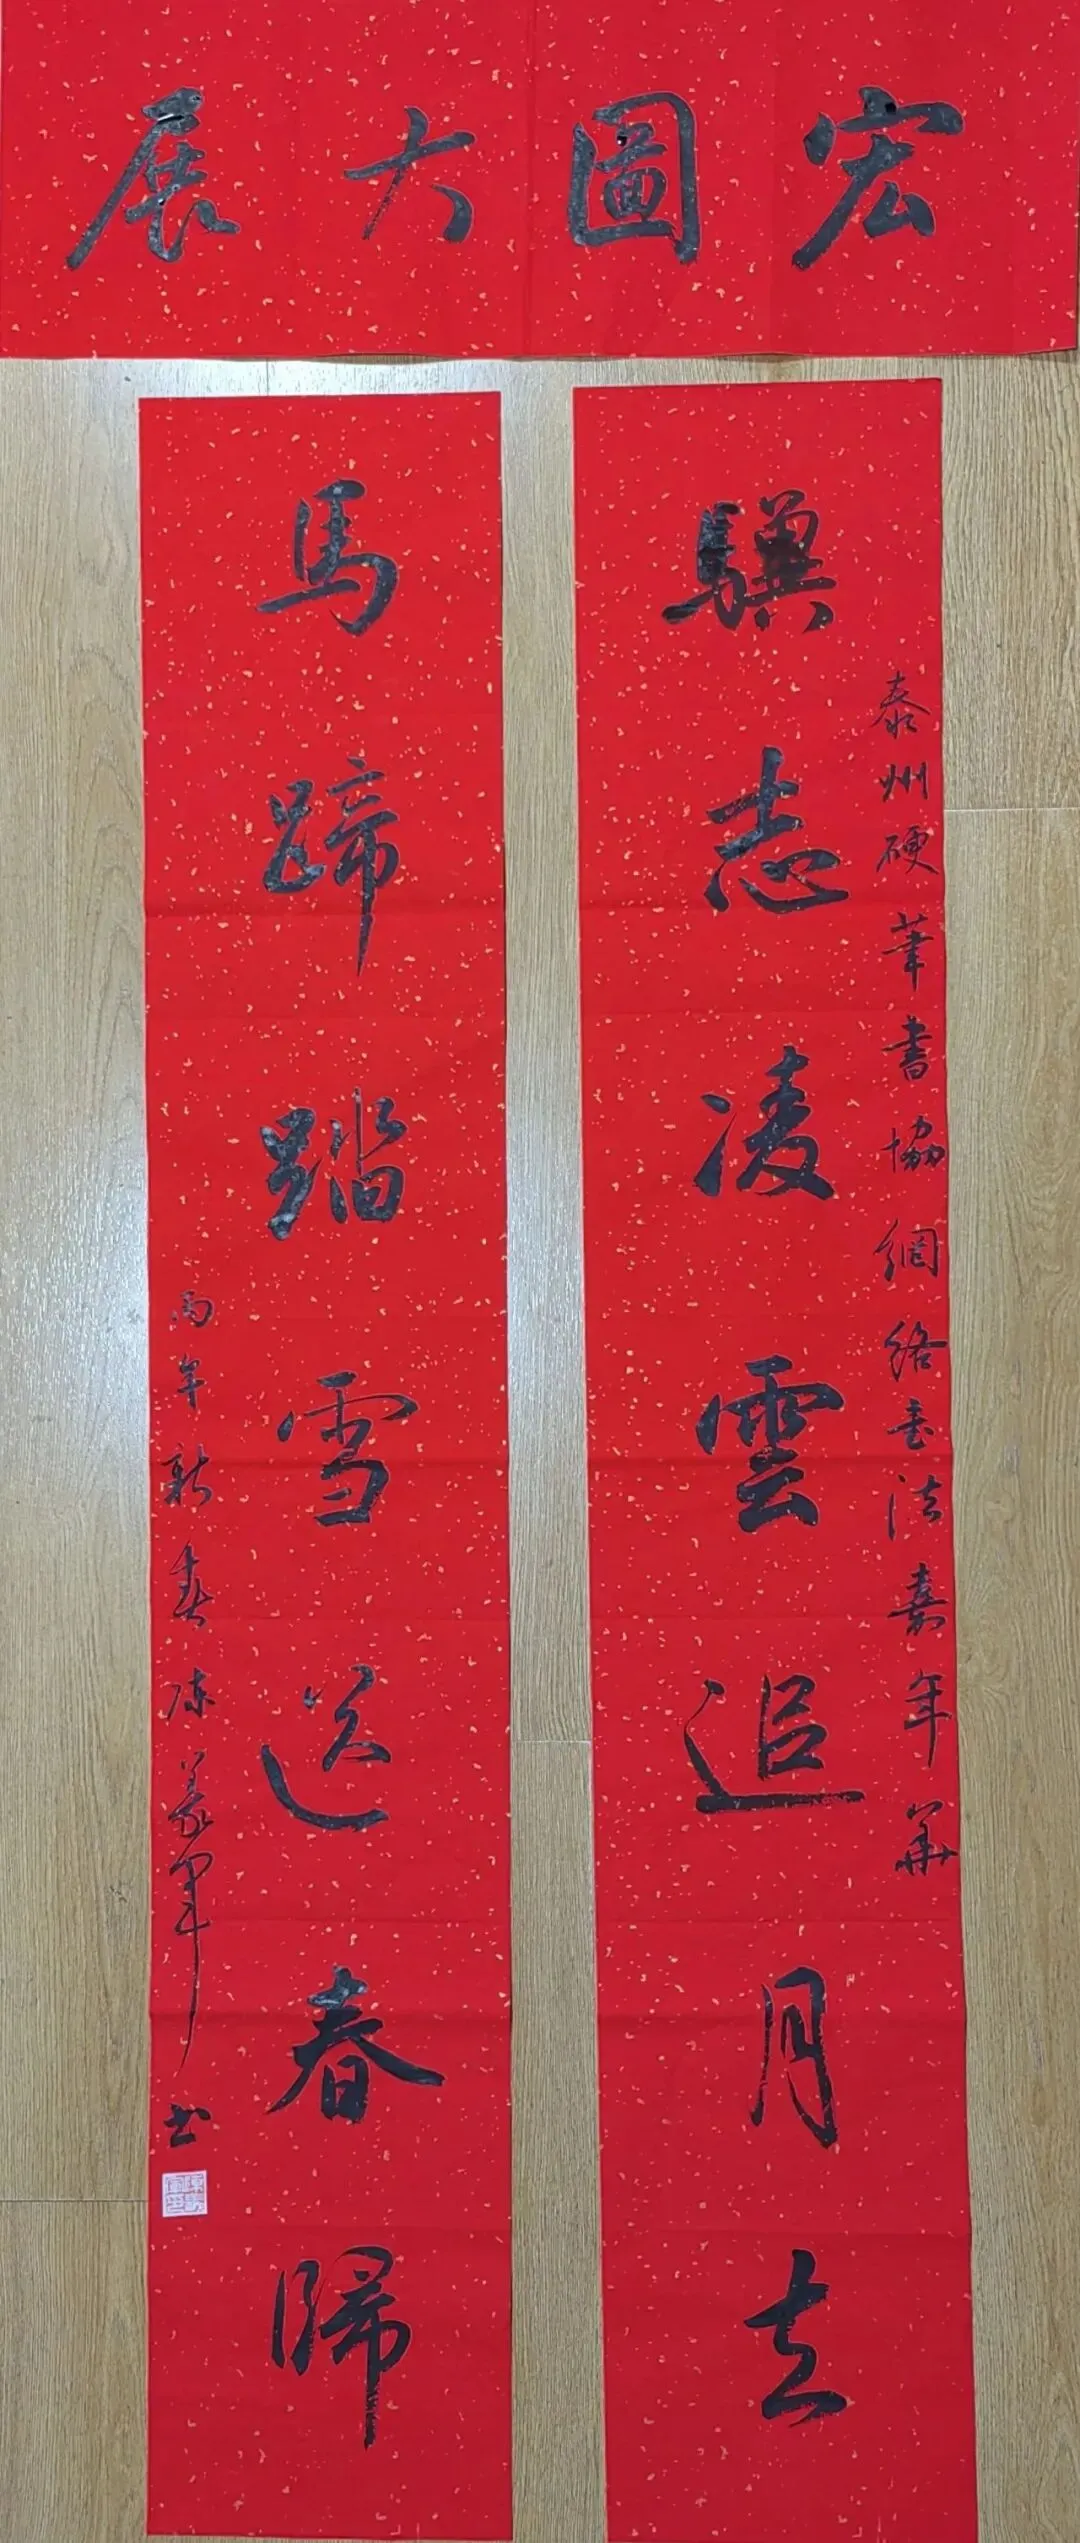 宏圖大展
驥志凌雲追月去
泰州硬筆書協網絡書法嘉年華
馬蹄踏雪送春歸
馬年新春陳義軍書